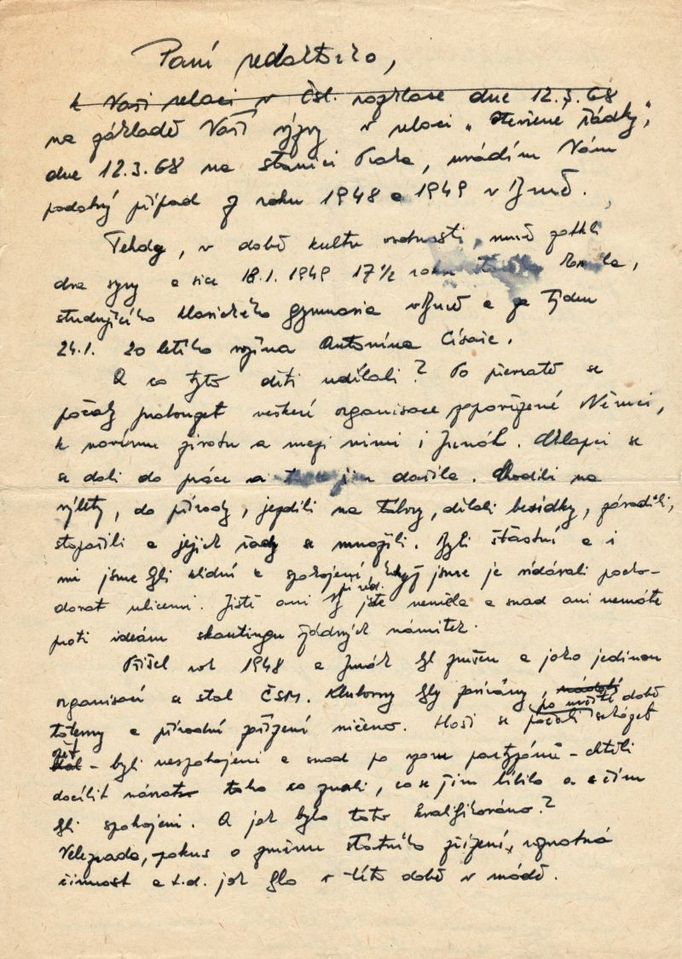 Paní redaktorko,
k Vaší relaci v Čsl. rozhlase dne 12.3.68
na základě Vaší výzvy v relaci „Otevřené řádky",
dne 12.3.68 na stanici Praha, uvádím Vám
podobný případ z roku 1948 a 1949 v Brně.
Tehdy, v době kultu osobnosti, mně zatkli
dva syny a sice 18.1.1949 17½ roku
studujícího klasického gymnasia v Brně a za týden
24.1. 20 letého syna Antonína Císaře.
A co tyto děti udělali? Po převratě se
počaly probouzet veškeré organisace zapovězené Němci,
k novému životu a mezi nimi i Junák. Chlapci se
se dali do práce a jim dařila. Chodili na
výlety, do přírody, jezdili na tábory, dělali besídky, závodili,
stopařili a jejich řady se množili. Byli šťastní a i
my jsme byli klidní a spokojení když jsme je nedávali poctou-
dovat ulicemi. Jistě ani Vy jste neměla a snad ani nemáte
proti ideám skautingu žádných námitek.
Přišel rok 1948 a Junák byl zrušen a jako jedinou
organisací se stal ČSM. Klubovny byly zavírány, po určité době
totemy a přírodní zařízení ničeno. Hoši se počali scházet
opět – byli nespokojeni a snad po vzoru partyzánů – chtěli
docílit návratu toho co znali, co se jim líbilo a s čím
byli spokojeni. A jak bylo toto kvalifikováno?
Velezrada, pokus o změnu státního zřízení, rozvratná
činnost a t.d. jak bylo v této době v módě.